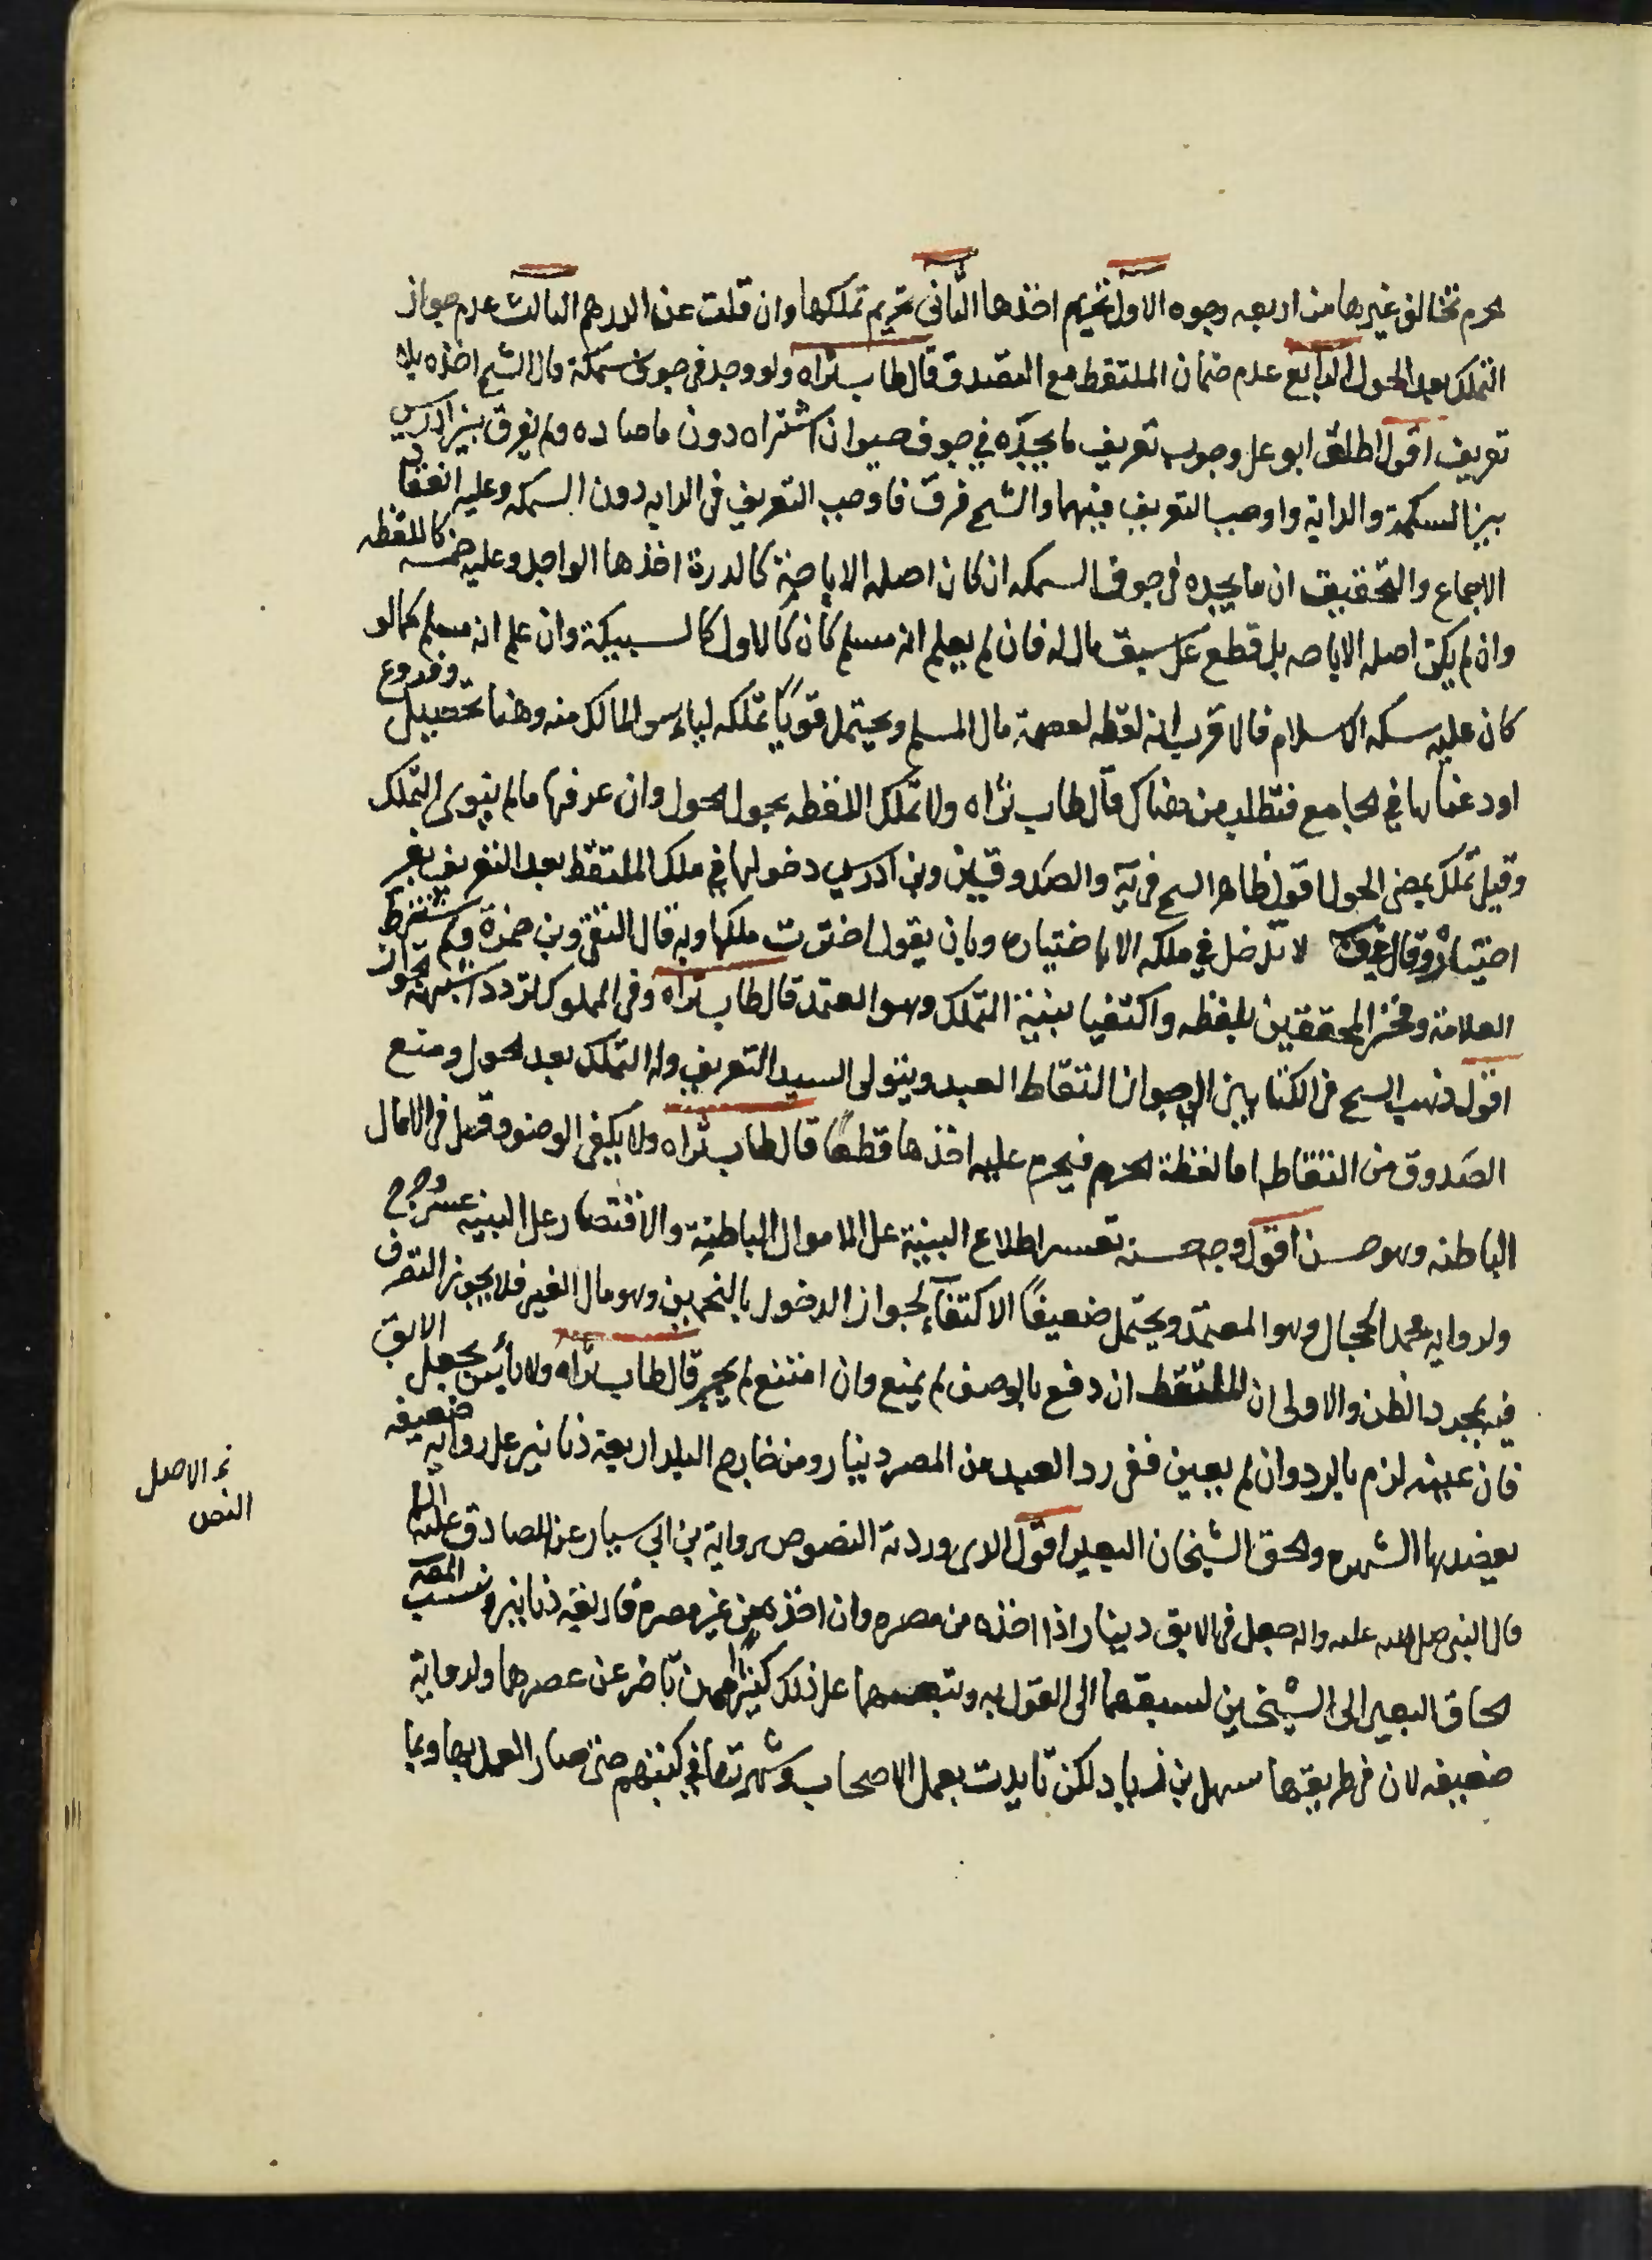 لحرم تخالف غيرها من اربعه وجوه الاول تحريم اخذها الثانى تحريم تملكها وان قلت عن الدرهم الثالث عدم جواز
التملك بعد الحول الرابع عدم ضمان الملتقط مع التصدق قال طاب ثراه ولو وجد فى جوف سمكة قال الشيخ اخذه بلا
تعريف اقول اطلق ابو على وجوب تعريف ما يجده في جوف حيوان اشتراه دون ما صاده ولم يفرق بن ادريس
بين السمكة والدابة واوجب التعريف فيهما والشيخ فرق فاوجب التعريف فى الدابه دون السمكه وعليه انعقد
الاجماع والتحقيق ان ما يجده فى جوف السمكه ان كان اصله الاباحة كالدرة اخذها الواجد وعليه خمسه كاللقطه
وان لم يكن اصله الاباحه بل قطع على سبق مال له فان لم يعلم انه مسلم كان كالاول كالسبيكة وان علم انه مسلم كما لو
كان عليه سكه الاسلام فالاقرب انه لقطه لعصمة مال المسلم ويحتمل قويا تملكه لياءس المالك منه وهنا تحصيل وفروع
اودعناها في الجامع فتطلب من هناك قال طاب ثراه ولا تملك اللقطه بحول الحول وان عرفها ما لم ينوى التملك
وقيل تملك بمضى الحول اقول ظاهر الشيخ فى يه والصدوقين وبن ادريس دخولها في ملك الملتقط بعد التعريف بغير
اختياره وقال في لا تدخل في ملكه الا باختياره وبان يقول اخترت ملكها وبه قال التقى وبن حمزة ولم يشترط
العلامة وفخر المحققين بلفظه واكتفيا بنية التملك وهو المعتمد قال طاب ثراه وفى المملوك تردد اشبهه الجواز
اقول ذهب الشيخ فى الكتابين الى جواز التقاط العبد ويتولى السيد التعريف وله التملك بعد الحول ومنع
الصدوق من التقاطه اما لقطة الحرم فيحرم عليه اخذها قطعا قال طاب ثراه ولا يكفى الوصف وقيل فى الاموال
الباطنه وهو حسن اقول وجه حسنه تعسر اطلاع البينة على الاموال الباطنة والاقتصار على البينه عسر وحرج
ولروايه محمد الحجال وهو المعتمد ويحتمل ضعيفا الاكتفاء لجواز الدخول بالتخمين وهو مال الغير فلا يجوز التصرف
فيه بمجرد الظن والاولى ان الملتقط ان دفع بالوصف لم يمنع وان امتنع لم يجبر قال طاب ثراه ولا بأس بجعل الابق
فان عينه لزم بالرد وان لم يعين ففى رد العبد من المصر دينار ومن خارج البلد اربعة دنانير على روايه ضعيفه
يعضدها الشهره والحق الشيخان البعير اقول الذى وردته النصوص رواية بن ابي سيار عن الصادق عليه السلام
قال النبى صلى الله عليه واله جعل فى الابق دينار اذا اخذه من مصره وان اخذه من غير مصره فاربعة دنانير ونسب المص
الحاق البعير الى الشيخين لسبقهما الى القول به وتبعهما على ذلك كثيرا ممن تاخر عن عصرهما والرواية
ضعيفه لان فى طريقها سهل بن زياد لكن تايدت بعمل الاصحاب وشهرتها في كتبهم حتى صار العمل بها وبما
الاصل
النص